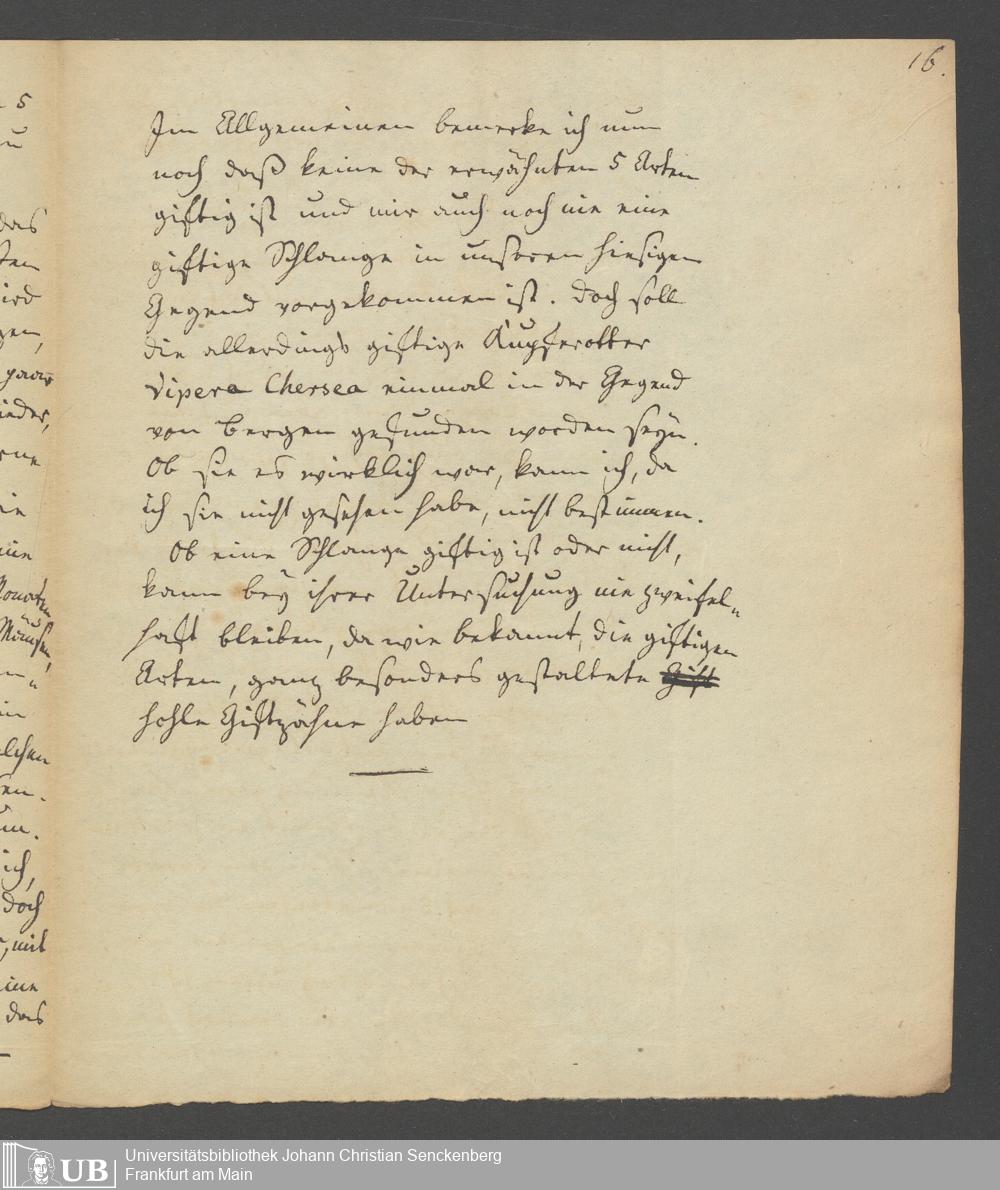 16.
Im Allgemeinen bemerke ich nun
noch daß keine der erwähnten 5 Arten
giftig ist und mir auch noch nie eine
giftige Schlange in unseren hiesigen
Gegend vorgekommen ist. Doch soll
die allerdings giftige Kupferotter
Vipera Chersea einmal in der Gegend
von Bergen gefunden worden seyn.
Ob sie es wirklich war, kann ich, da
ich sie nicht gesehen habe, nicht bestimmen.
Ob eine Schlange giftig ist oder nicht,
kann bey ihrer Untersuchung nie zweifel„
haft bleiben, da wie bekannt, die giftigen
Arten, ganz besonders gestaltete Gift
hohle Giftzähne haben
5
das
ird
gen,
paar
ieder,
Monaten
Mäuse,
lchen
ich,
doch
mit
das
UB
Universitätsbibliothek Johann Christian Senckenberg
Frankfurt am Main